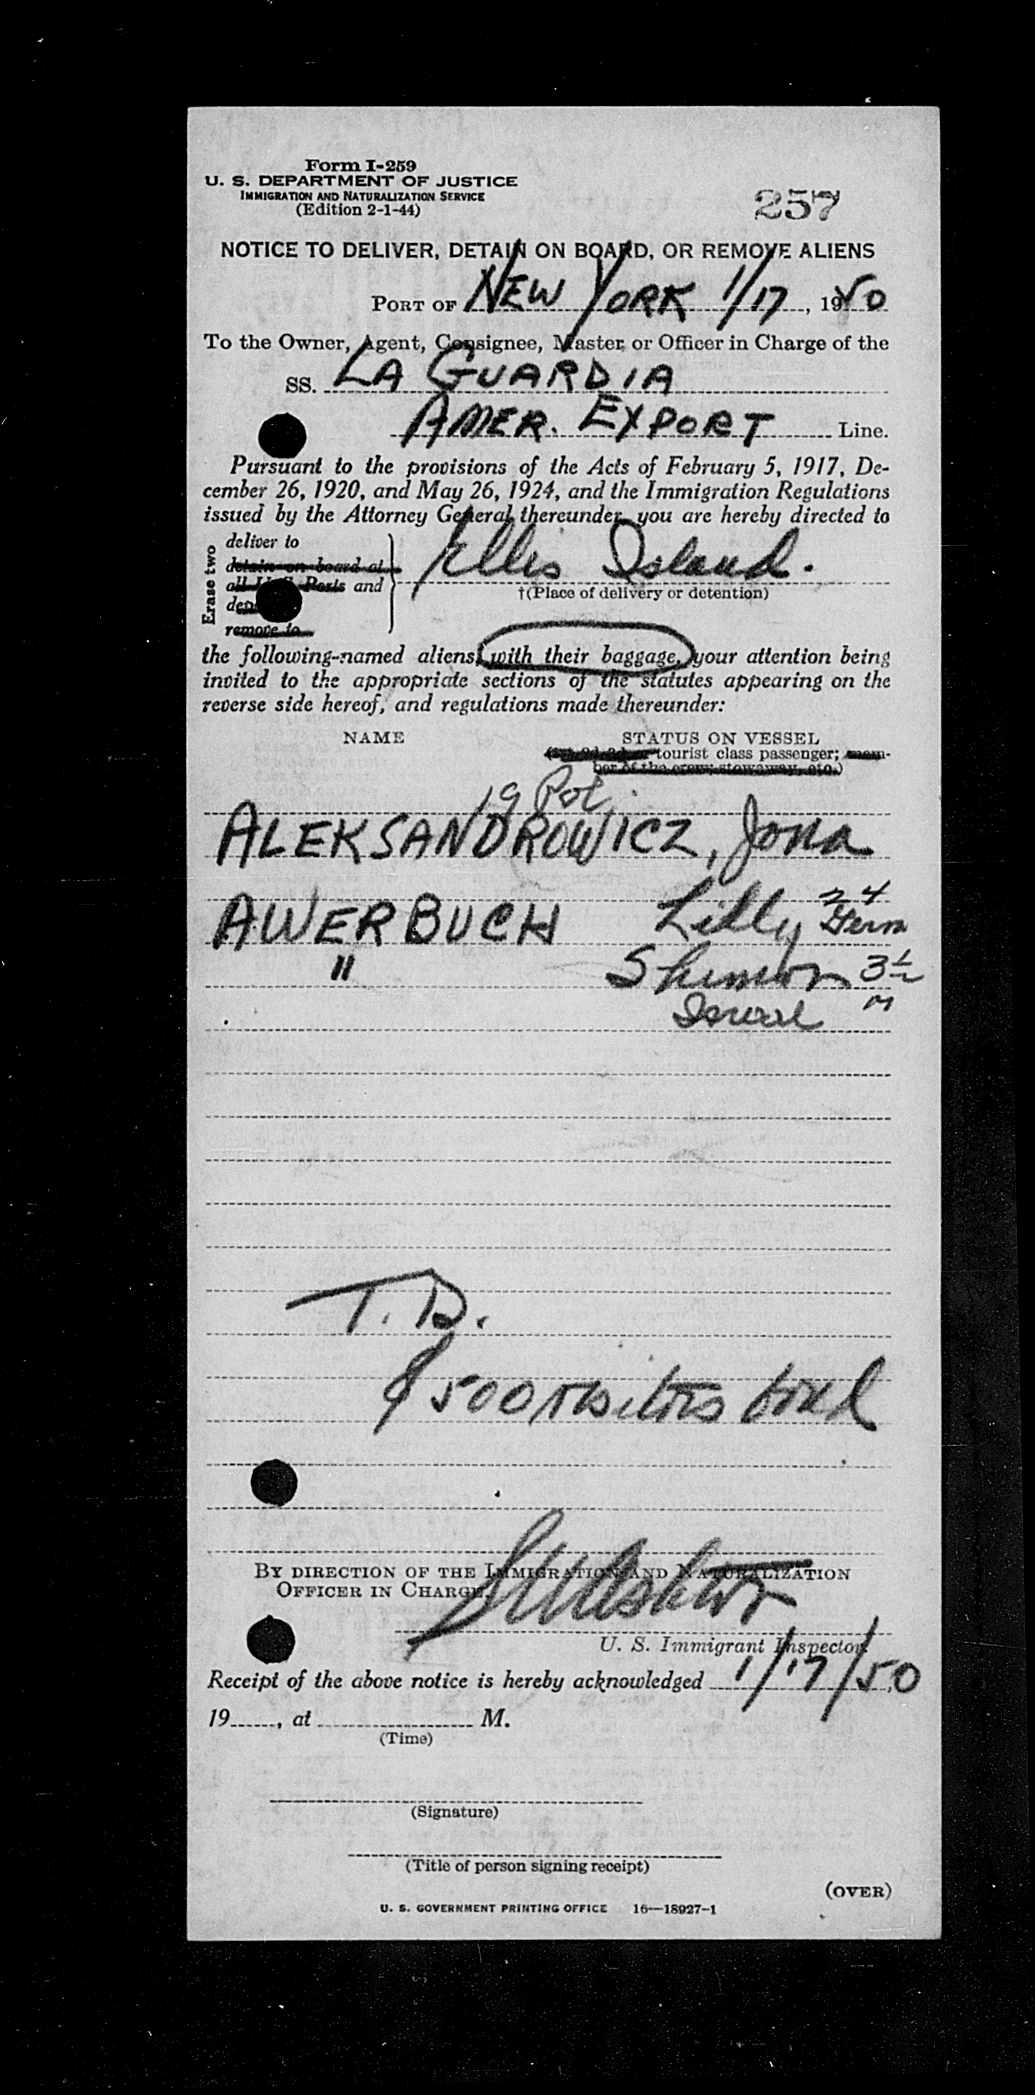 Form I-259
U. S. DEPARTMENT OF JUSTICE
IMMIGRATION AND NATURALIZATION SERVICE
(Edition 2-1-44)
257
NOTICE TO DELIVER, DETAIN ON BOARD, OR REMOVE ALIENS
PORT OF NEW YORK 1/17, 1950
To the Owner, Agent, Consignee, Master or Officer in Charge of the
SS. LA GUARDIA
AMER. EXPORT Line.
Pursuant to the provisions of the Acts of February 5, 1917, De-
cember 26, 1920, and May 26, 1924, and the Immigration Regulations
issued by the Attorney General thereunder, you are hereby directed to
Erase two
deliver to
detain on board at
all U. S. Ports and
remove to
Ellis Island.
†(Place of delivery or detention)
the following-named aliens, with their baggage, your attention being
invited to the appropriate sections of the statutes appearing on the
reverse side hereof, and regulations made thereunder:
NAME STATUS ON VESSEL
tourist class passenger; mem-
ber of the crew; stowaway, etc.)
19 Pol.
ALEKSANDROWICZ, Jona
AWERBUCH Lilly 24 Germ
" Shimon 3½
Israel M
T. D.
$500 visitors bond
BY DIRECTION OF THE IMMIGRATION AND NATURALIZATION
OFFICER IN CHARGE.
U. S. Immigrant Inspector.
Receipt of the above notice is hereby acknowledged 1/17/50
19......, at .................... M.
(Time)
(Signature)
(Title of person signing receipt)
(OVER)
U. S. GOVERNMENT PRINTING OFFICE 16—18927-1